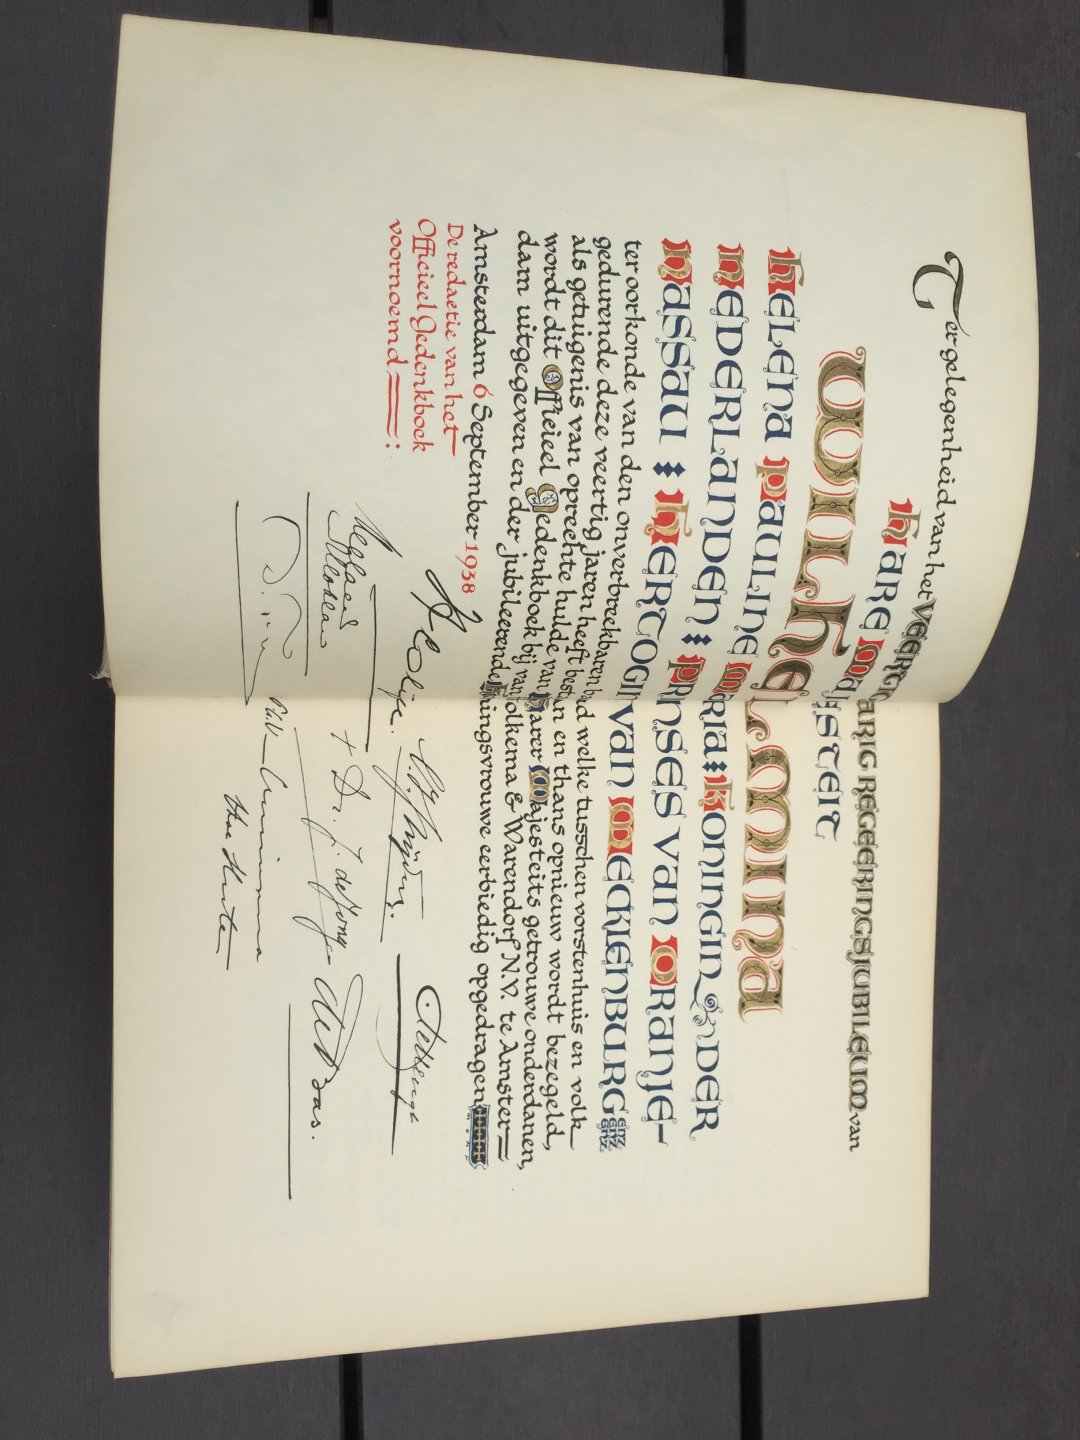 Ter gelegenheid van het VEERTIGJARIG REGEERINGSJUBILEUM van
HARE MAJESTEIT
WILHELMINA
HELENA PAULINE MARIA : KONINGIN DER
NEDERLANDEN : PRINSES VAN ORANJE-
NASSAU : HERTOGIN VAN MECKLENBURG ENZ ENZ ENZ
ter oorkonde van den onverbreekbaren band welke tusschen vorstenhuis en volk
gedurende deze veertig jaren heeft bestaan en thans opnieuw wordt bezegeld,
als getuigenis van oprechte hulde van Harer Majesteits getrouwe onderdanen,
wordt dit Officieel Gedenkboek bij van Holkema & Warendorf N.V. te Amster=
dam uitgegeven en der jubileerende Koningsvrouwe eerbiedig opgedragen
Amsterdam 6 September 1938
De redactie van het
Officieel Gedenkboek
voornoemd :
+ Dr. J. de Jong